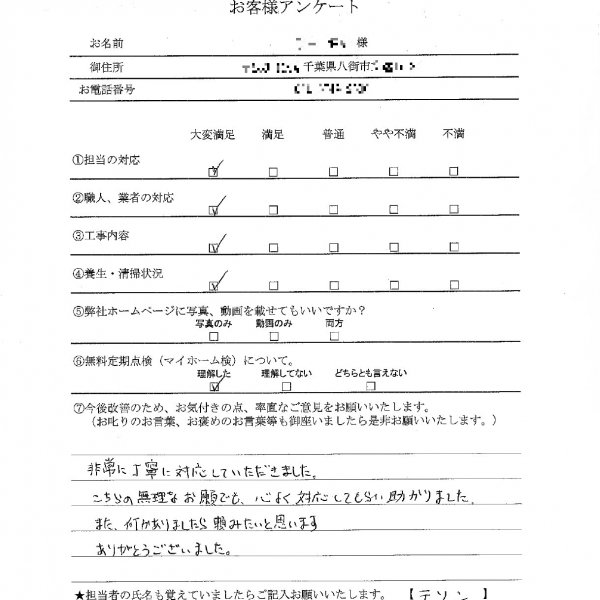 お客様アンケート
お名前 様
御住所 千葉県八街市
お電話番号
大変満足 満足 普通 やや不満 不満
①担当の対応
②職人、業者の対応
③工事内容
④養生・清掃状況
⑤弊社ホームページに写真、動画を載せてもいいですか？
写真のみ 動画のみ 両方
⑥無料定期点検（マイホーム検）について。
理解した 理解してない どちらとも言えない
⑦今後改善のため、お気付きの点、率直なご意見をお願いいたします。
（お叱りのお言葉、お褒めのお言葉等も御座いましたら是非お願いいたします。）
非常に丁寧に対応していただきました。
こちらの無理なお願でも、心よく対応してもらい助かりました。
また、何かありましたら頼みたいと思います
ありがとうございました。
★担当者の氏名も覚えていましたらご記入お願いいたします。 【 】